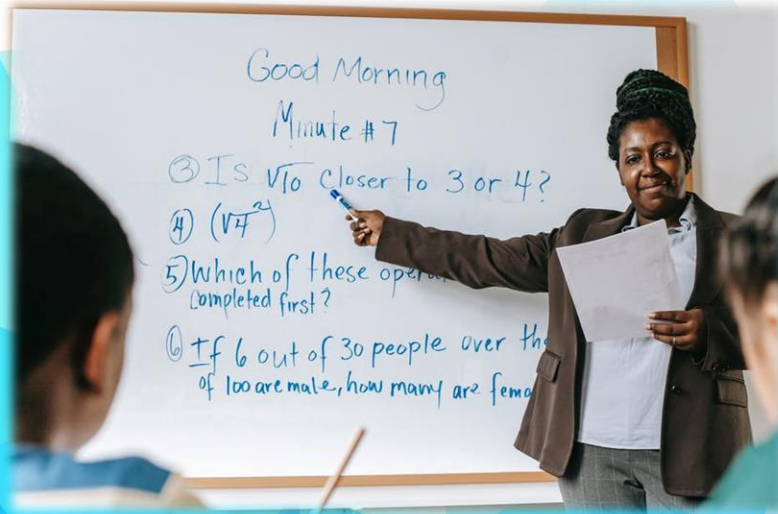 Good Morning
Minute #7
③ Is √10 closer to 3 or 4?
④ (√4²)
5) Which of these
completed first?
⑥ If 6 out of 30 people over
of 100 are male, how many are